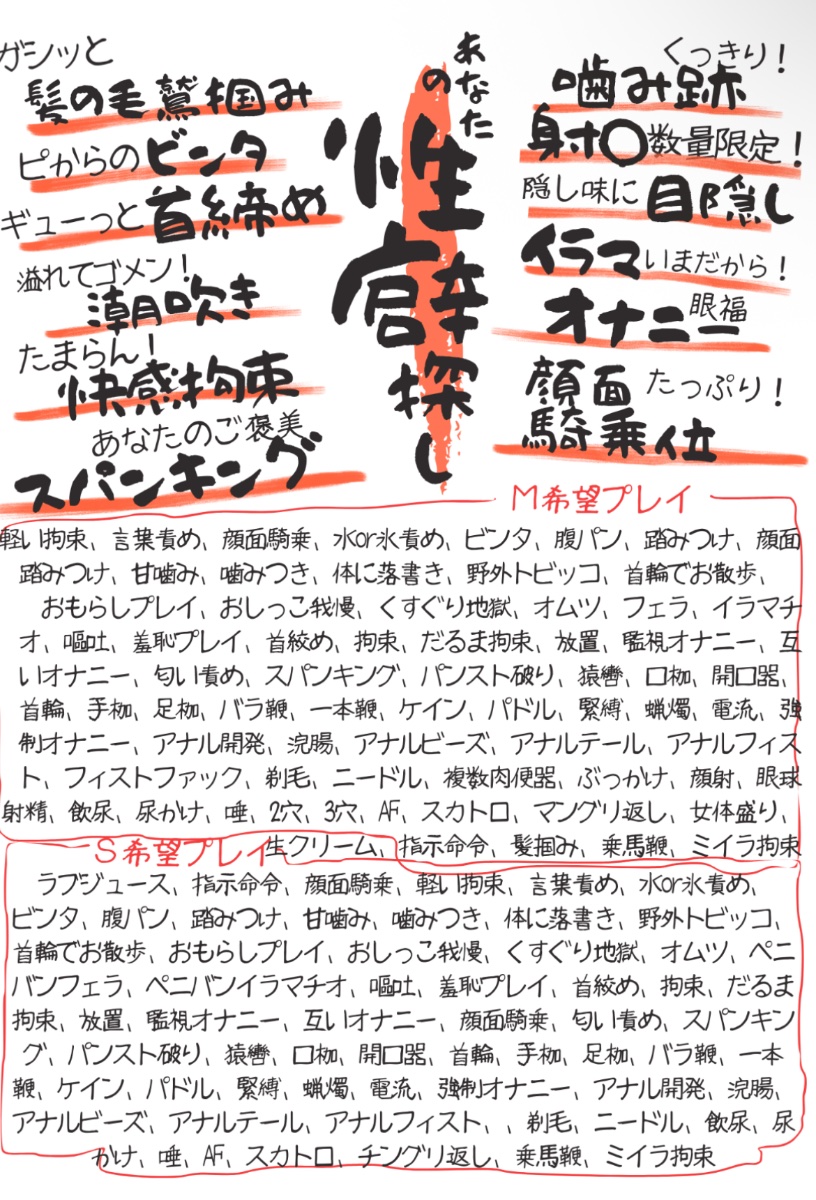 あなたの
性癖探し
ガシッと
髪の毛鷲掴み
ピからのビンタ
ギューっと首締め
溢れてゴメン！
潮吹き
たまらん！
快感拘束
あなたのご褒美
スパンキング
くっきり！
噛み跡
射〇数量限定！
隠し味に目隠し
イラマいまだから！
オナニー眼福
顔面たっぷり！
騎乗位
M希望プレイ
軽い拘束、言葉責め、顔面騎乗、水or氷責め、ビンタ、腹パン、踏みつけ、顔面
踏みつけ、甘噛み、噛みつき、体に落書き、野外トビッコ、首輪でお散歩、
おもらしプレイ、おしっこ我慢、くすぐり地獄、オムツ、フェラ、イラマチ
オ、嘔吐、羞恥プレイ、首絞め、拘束、だるま拘束、放置、監視オナニー、互
いオナニー、匂い責め、スパンキング、パンスト破り、猿轡、口枷、開口器、
首輪、手枷、足枷、バラ鞭、一本鞭、ケイン、パドル、緊縛、蝋燭、電流、強
制オナニー、アナル開発、浣腸、アナルビーズ、アナルテール、アナルフィス
ト、フィストファック、剃毛、ニードル、複数肉便器、ぶっかけ、顔射、眼球
射精、飲尿、尿かけ、唾、2穴、3穴、AF、スカトロ、マングリ返し、女体盛り、
生クリーム、指示命令、髪掴み、乗馬鞭、ミイラ拘束
S希望プレイ
ラブジュース、指示命令、顔面騎乗、軽い拘束、言葉責め、水or氷責め、
ビンタ、腹パン、踏みつけ、甘噛み、噛みつき、体に落書き、野外トビッコ、
首輪でお散歩、おもらしプレイ、おしっこ我慢、くすぐり地獄、オムツ、ペニ
バンフェラ、ペニバンイラマチオ、嘔吐、羞恥プレイ、首絞め、拘束、だるま
拘束、放置、監視オナニー、互いオナニー、顔面騎乗、匂い責め、スパンキン
グ、パンスト破り、猿轡、口枷、開口器、首輪、手枷、足枷、バラ鞭、一本
鞭、ケイン、パドル、緊縛、蝋燭、電流、強制オナニー、アナル開発、浣腸、
アナルビーズ、アナルテール、アナルフィスト、、剃毛、ニードル、飲尿、尿
かけ、唾、AF、スカトロ、チングリ返し、乗馬鞭、ミイラ拘束